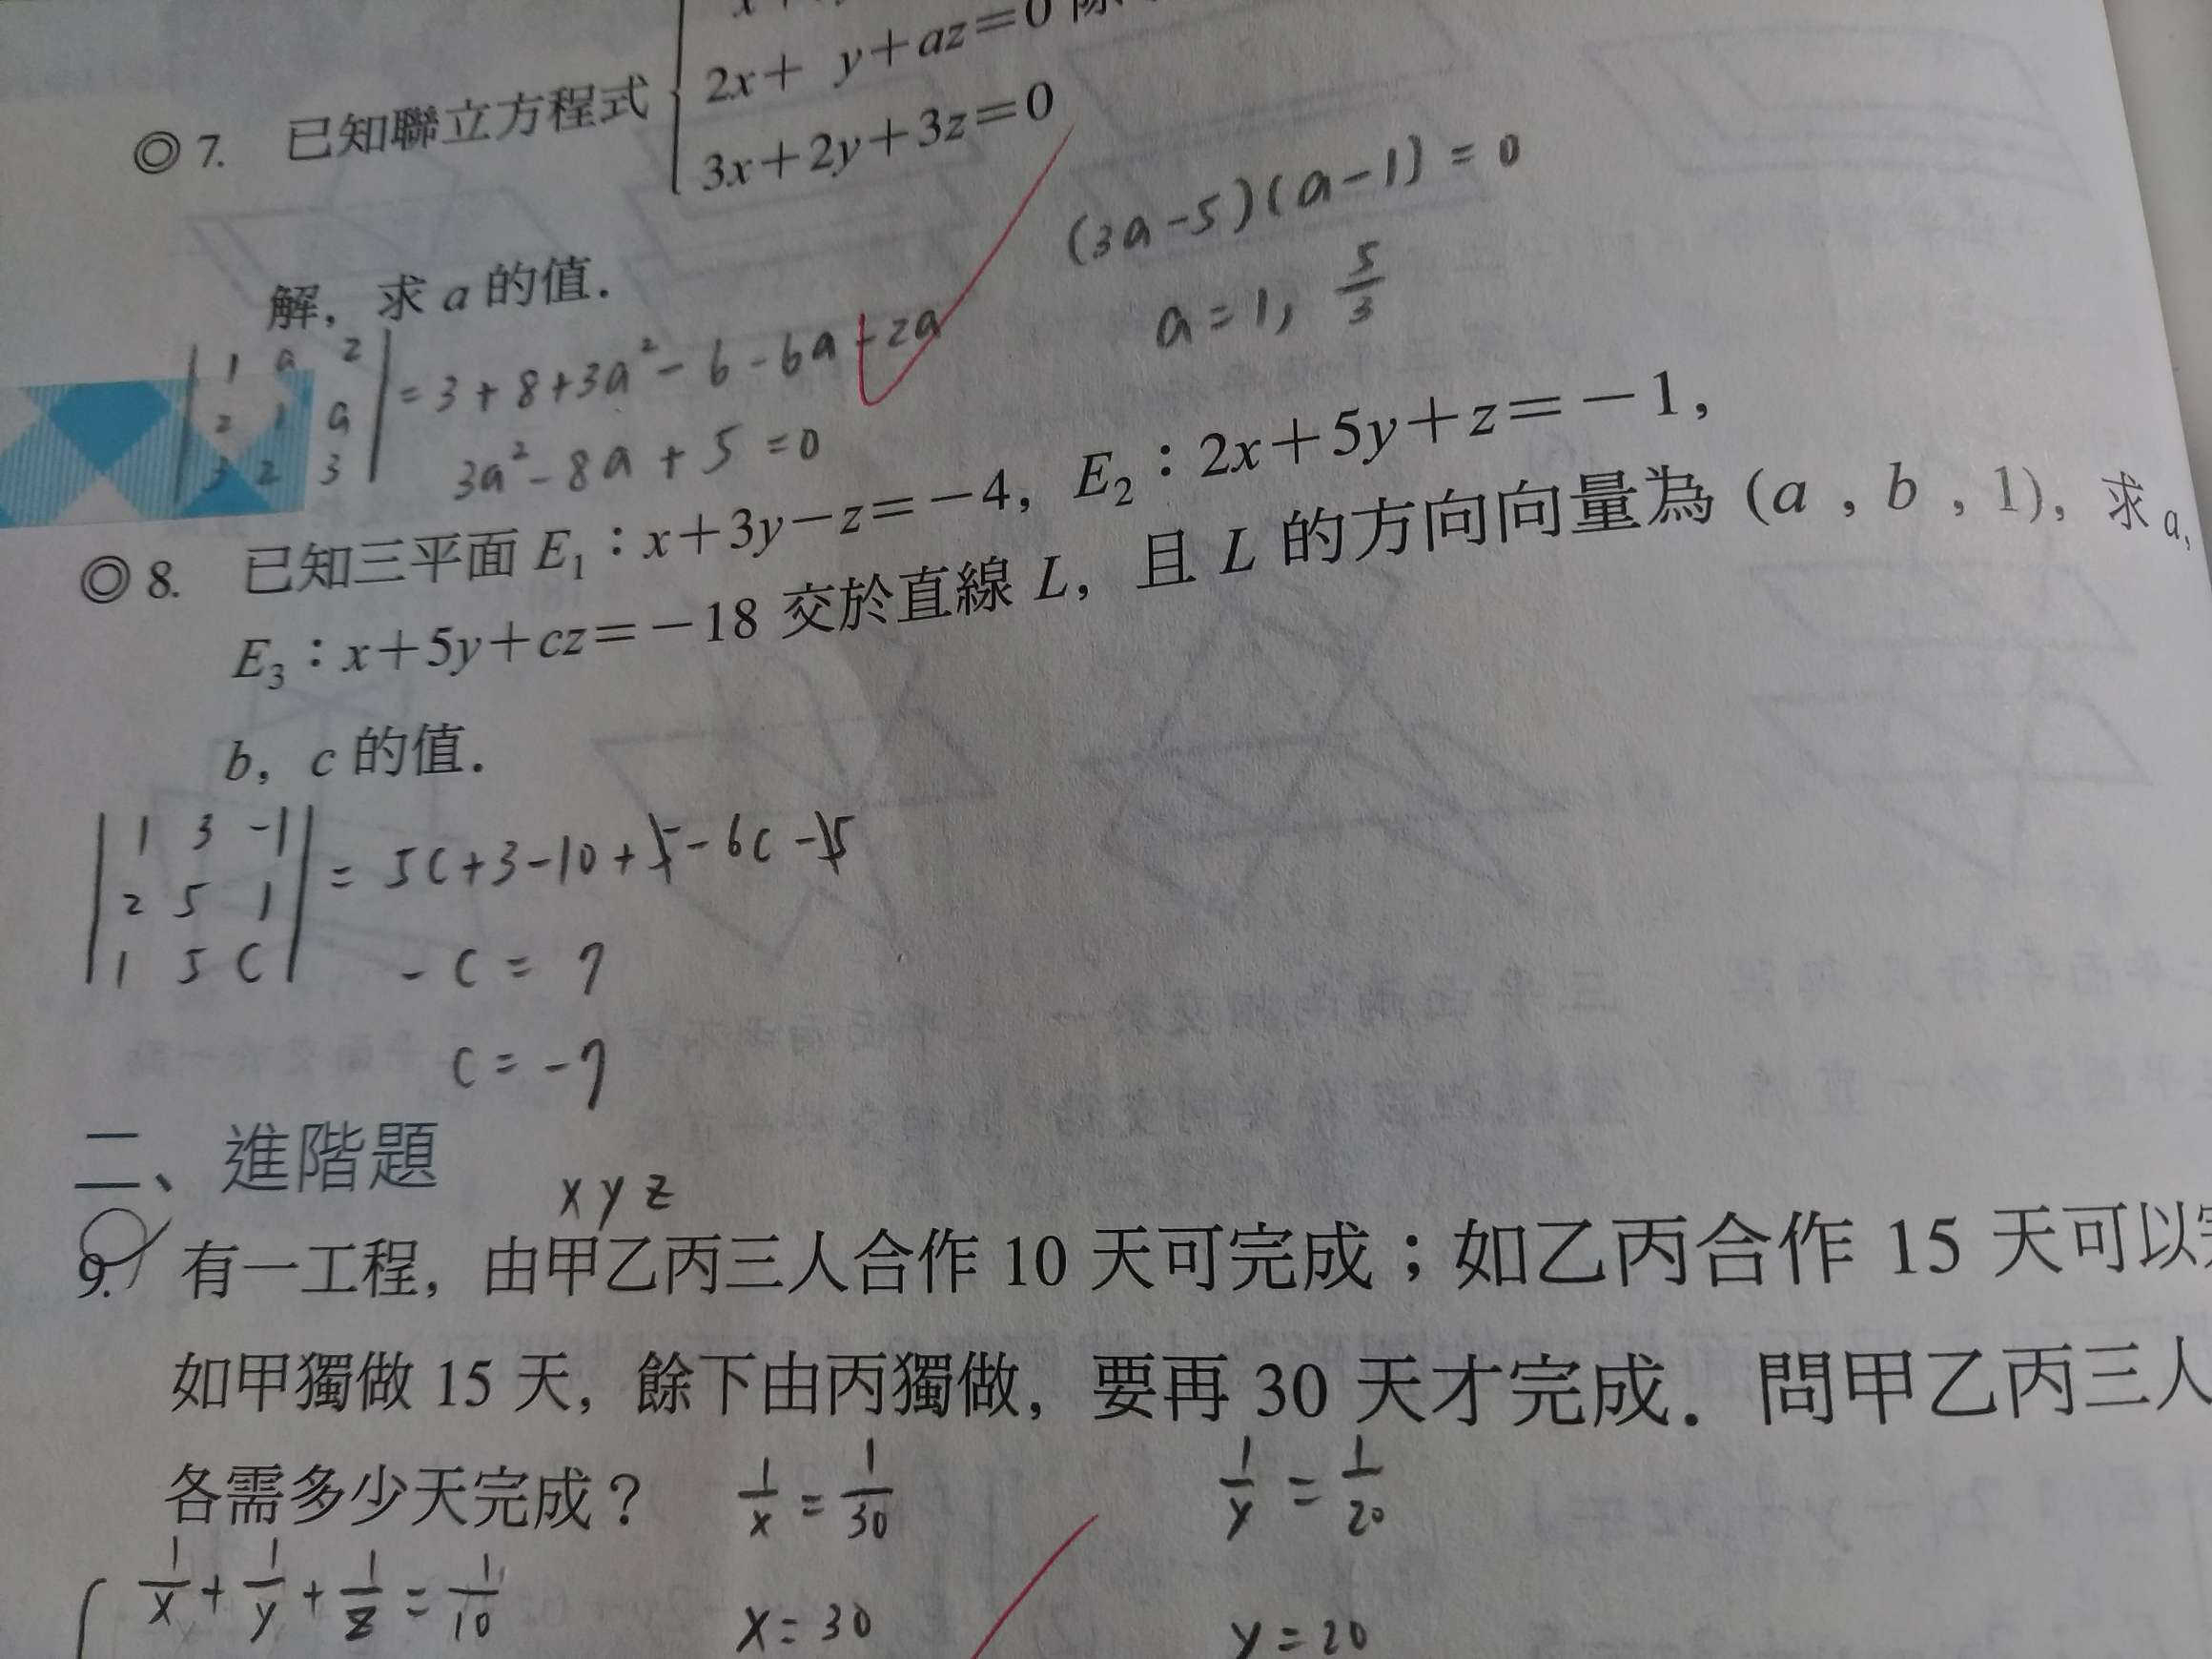 2x+ y+az=0
◎7. 已知聯立方程式
3x+2y+3z=0
(3a-5)(a-1)=0
解，求 a 的值．
a=1, 5/3
| 1 a 2 |
| 2 1 a |
| 3 2 3 |
=3+8+3a²-6-6a-2a
3a²-8a+5=0
◎8. 已知三平面 E₁：x+3y−z=−4，E₂：2x+5y+z=−1，
E₃：x+5y+cz=−18 交於直線 L，且 L 的方向向量為 (a , b , 1)，求 a,
b，c 的值．
| 1 3 -1 |
| 2 5 1 |
| 1 5 C |
= 5C+3-10+5-6C-5
-C = 7
C = -7
二、進階題
x y z
9. 有一工程，由甲乙丙三人合作 10 天可完成；如乙丙合作 15 天可以
如甲獨做 15 天，餘下由丙獨做，要再 30 天才完成．問甲乙丙三人
各需多少天完成？
1/x = 1/30
1/y = 1/20
1/x + 1/y + 1/z = 1/10
x=30
y=20